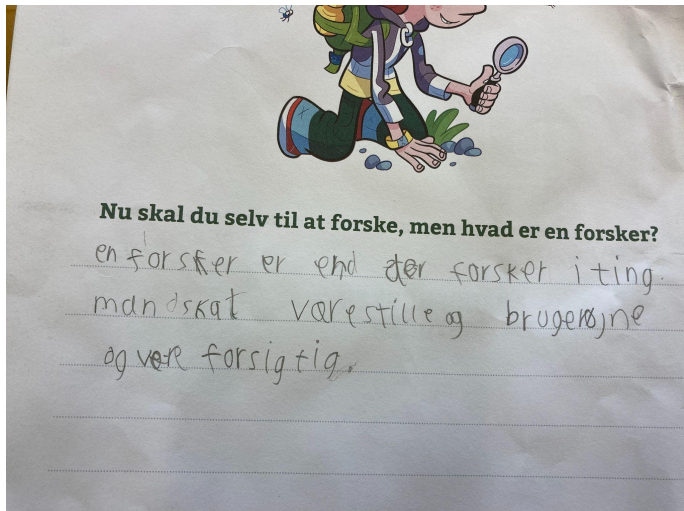 Nu skal du selv til at forske, men hvad er en forsker?
en forsker er end der forsker i ting.
mand skat være stille og bruge øjne
og være forsigtig.